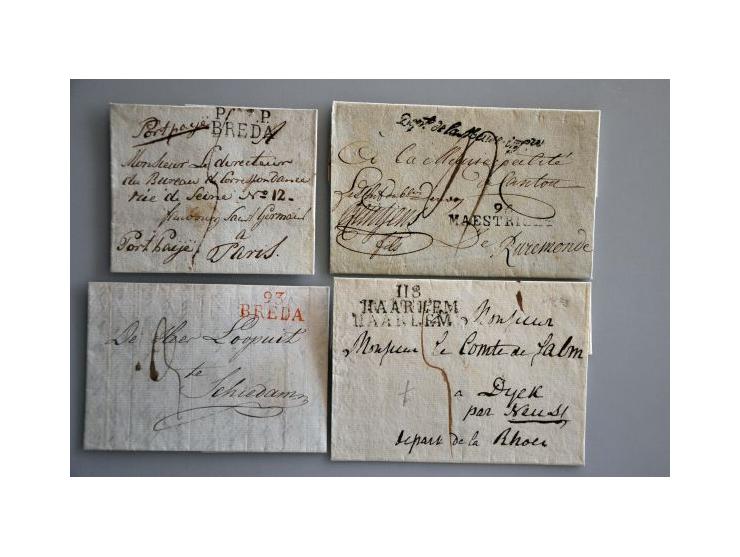 Port payé
P. P.
BREDA
Monsieur Le directeur
du Bureau de Correspondance
rüe de Seine No 12.
faubourg Saint Germain
à
Paris.
Port payé
Dept. de la Meuse infre
à la Municipalité
de Canton
94
MAESTRICHT
fils
De Ruremonde
93
BREDA
De Heer
te
Schiedam
118
HAARLEM
HAARLEM
Monsieur
Monsieur le Comte de Salm
a Dyck
par Neuss
depart de la Rhoer